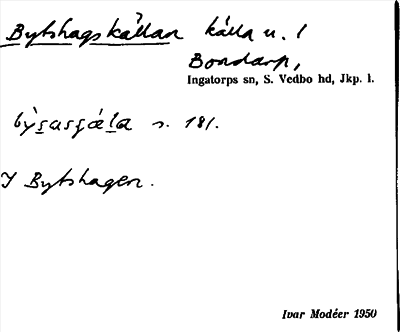 Bytshagskällan källa u. 1
Bondarp,
Ingatorps sn, S. Vedbo hd, Jkp. l.
s. 181.
I Bytshagen.
Ivar Modéer 1950